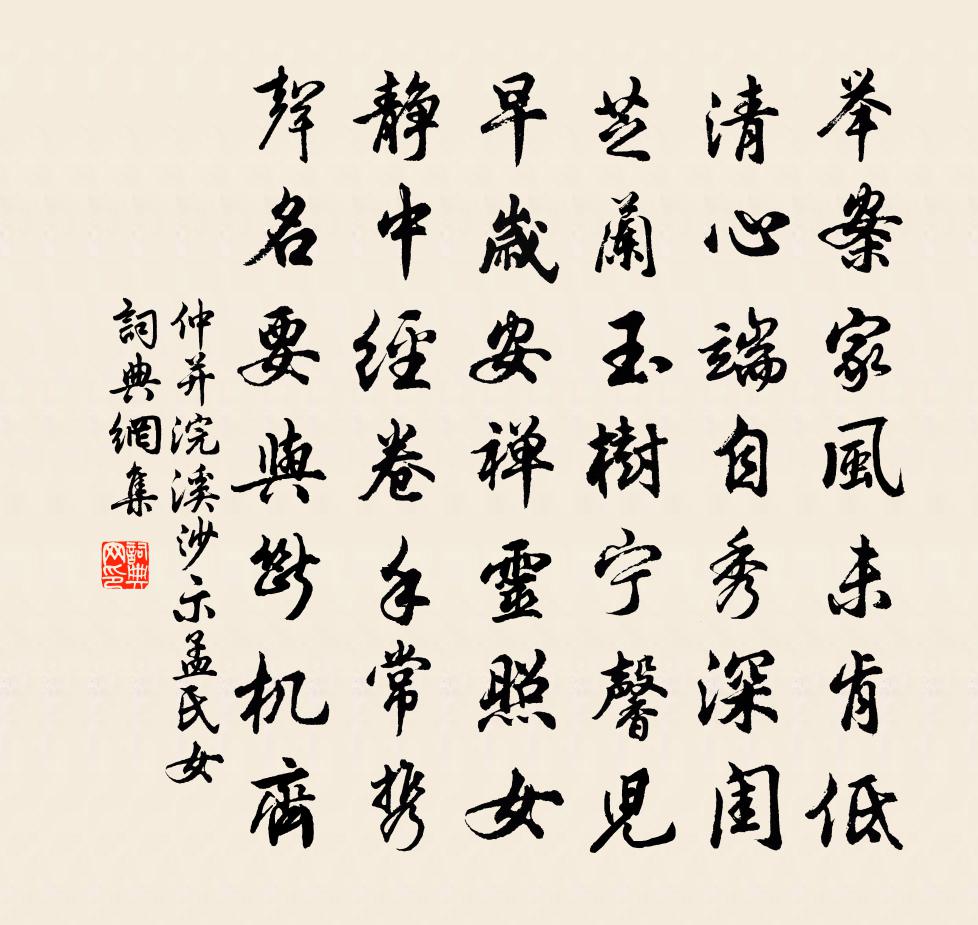 举案家風未肯低
清心端自秀深闺
芝蘭玉樹宁馨児
早歳安禅靈照女
静中經卷手常携
聲名要與斷机齊
仲并浣溪沙示孟氏女
詞典網集
詞典网印